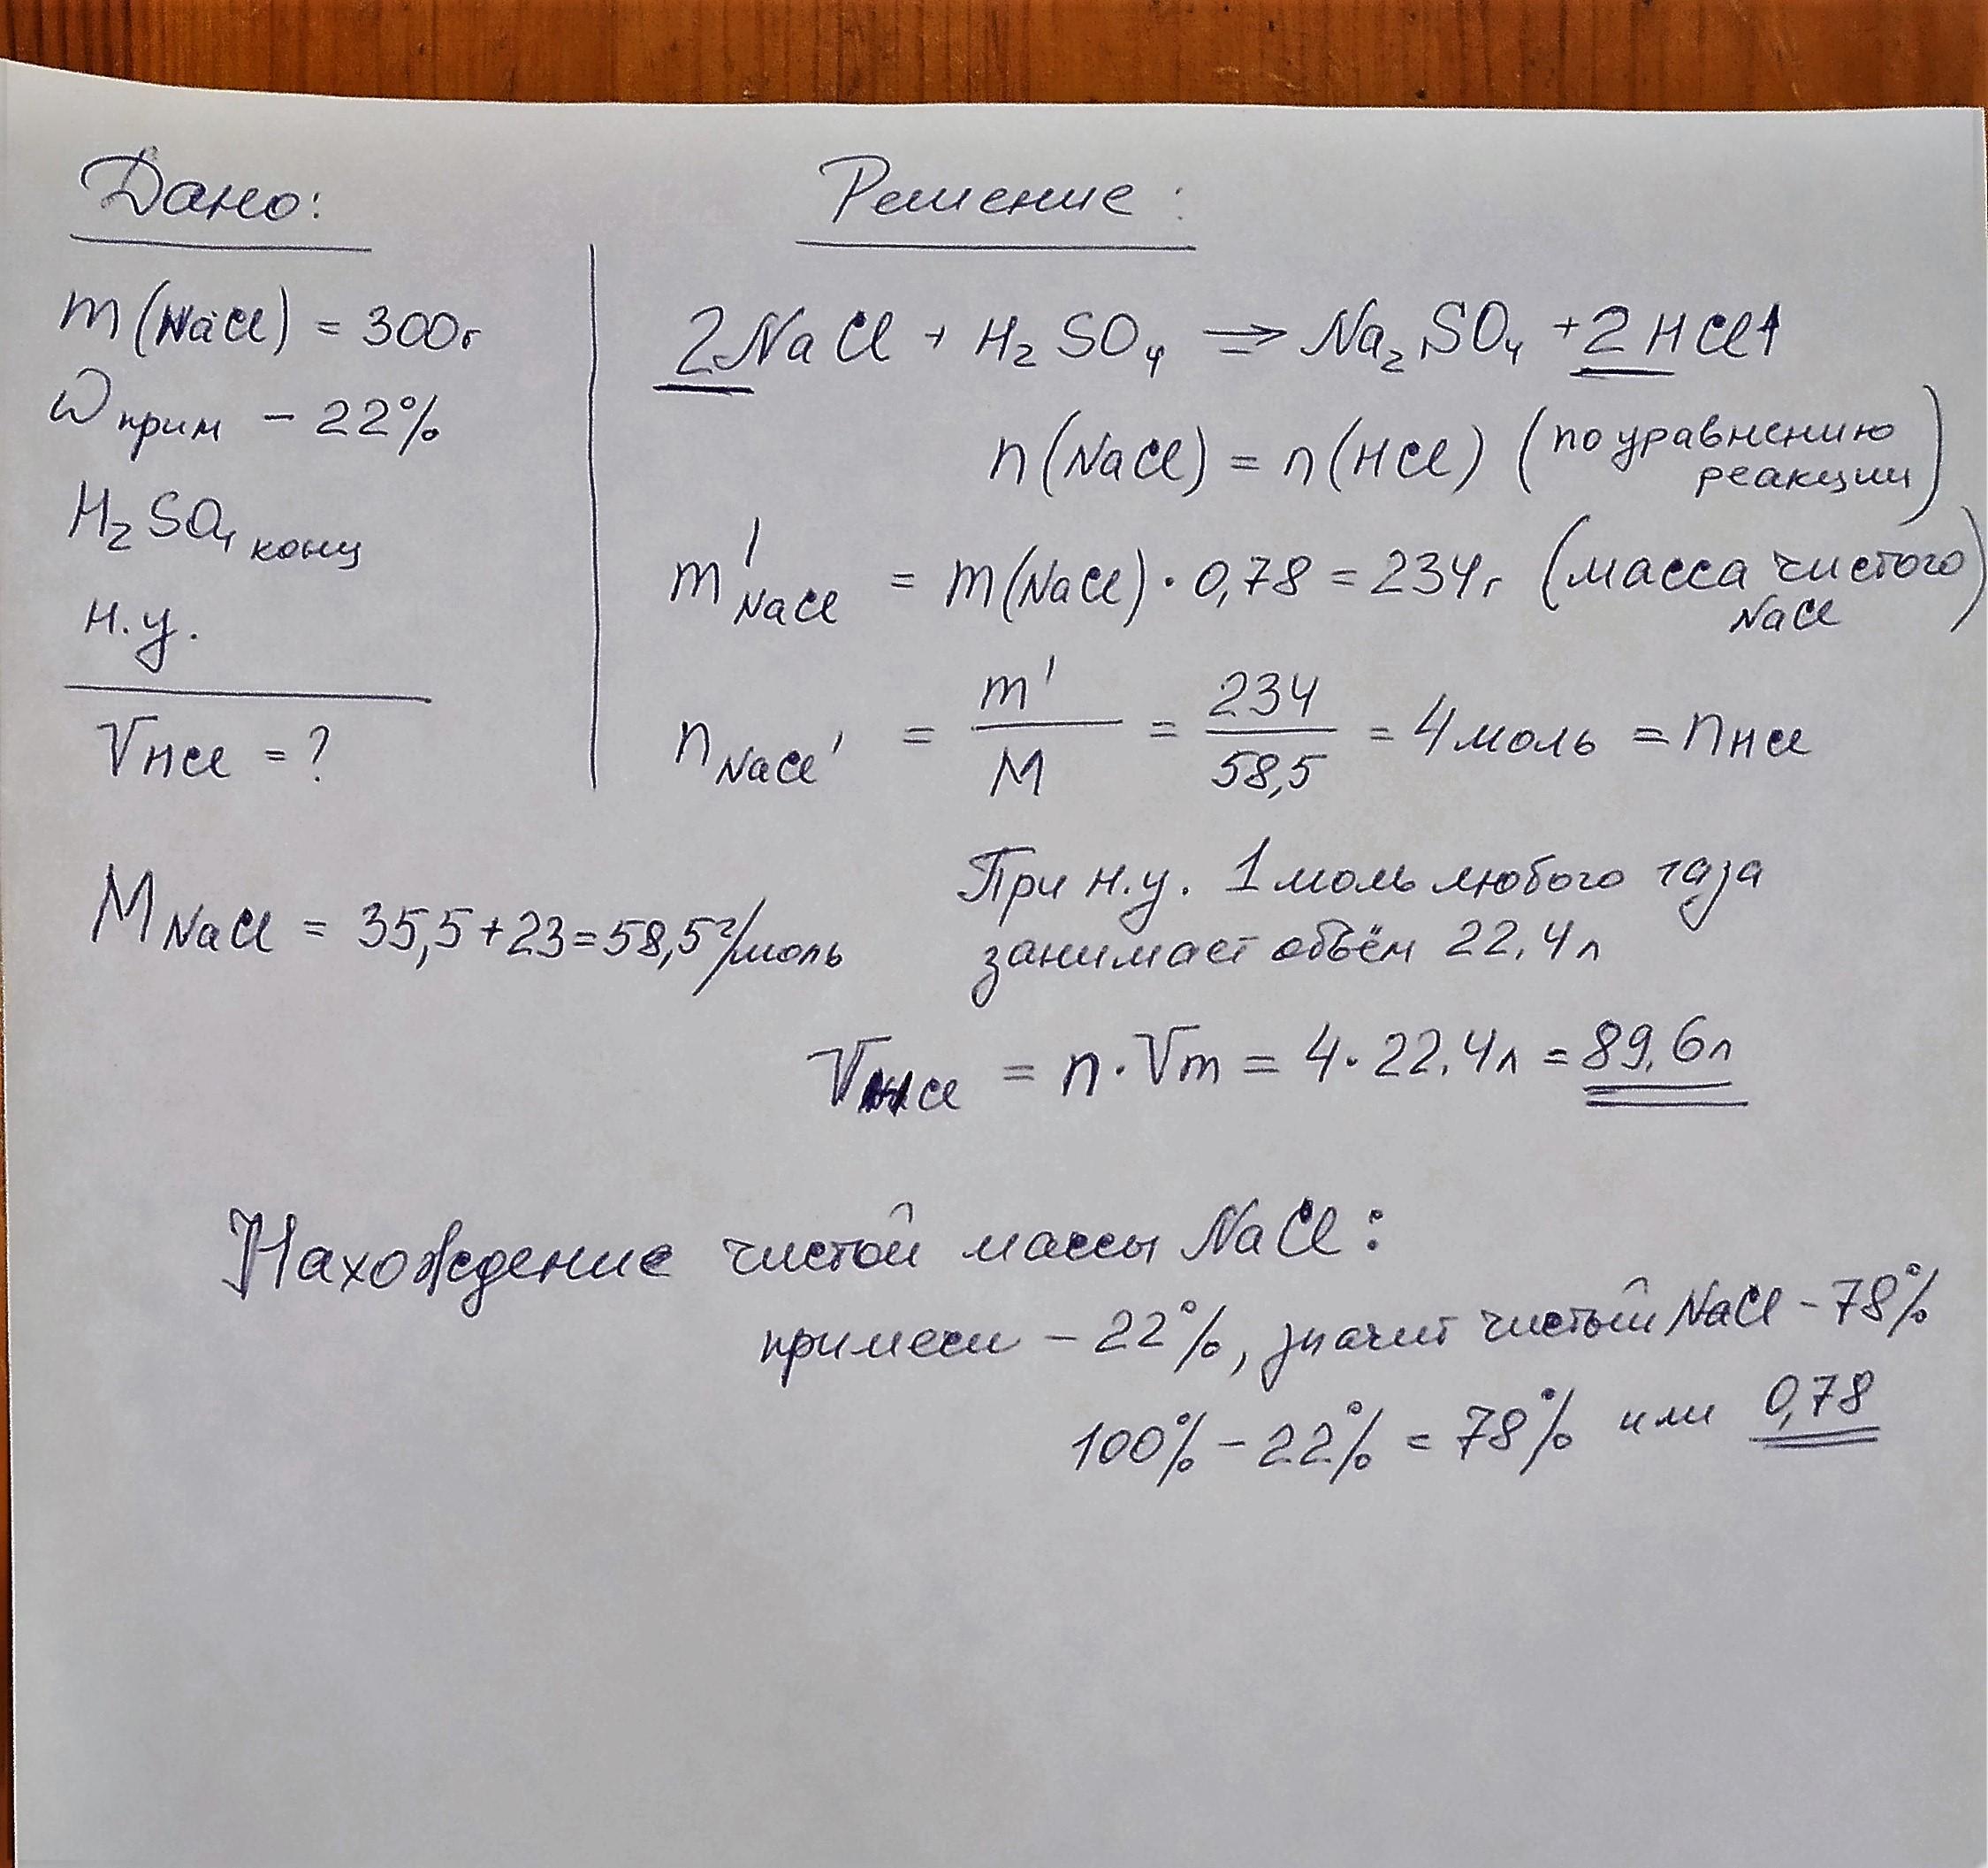 Дано:
m(NaCl) = 300г
ω прим – 22%
H₂SO₄ конц
н.у.
V HCl = ?
M NaCl = 35,5+23=58,5 г/моль
Решение:
2NaCl + H₂SO₄ ⇒ Na₂SO₄ + 2HCl↑
n(NaCl) = n(HCl) (по уравнению
реакции)
m' NaCl = m(NaCl) · 0,78 = 234г (масса чистого
NaCl)
n NaCl' = m'/M = 234/58,5 = 4 моль = n HCl
При н.у. 1 моль любого газа
занимает объём 22.4л
V HCl = n · Vm = 4 · 22.4л = 89.6л
Нахождение чистой массы NaCl:
примеси – 22%, значит чистый NaCl – 78%
100% – 22% = 78% или 0,78